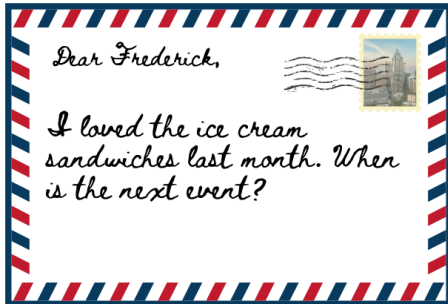 Dear Frederick,
I loved the ice cream
sandwiches last month. When
is the next event?